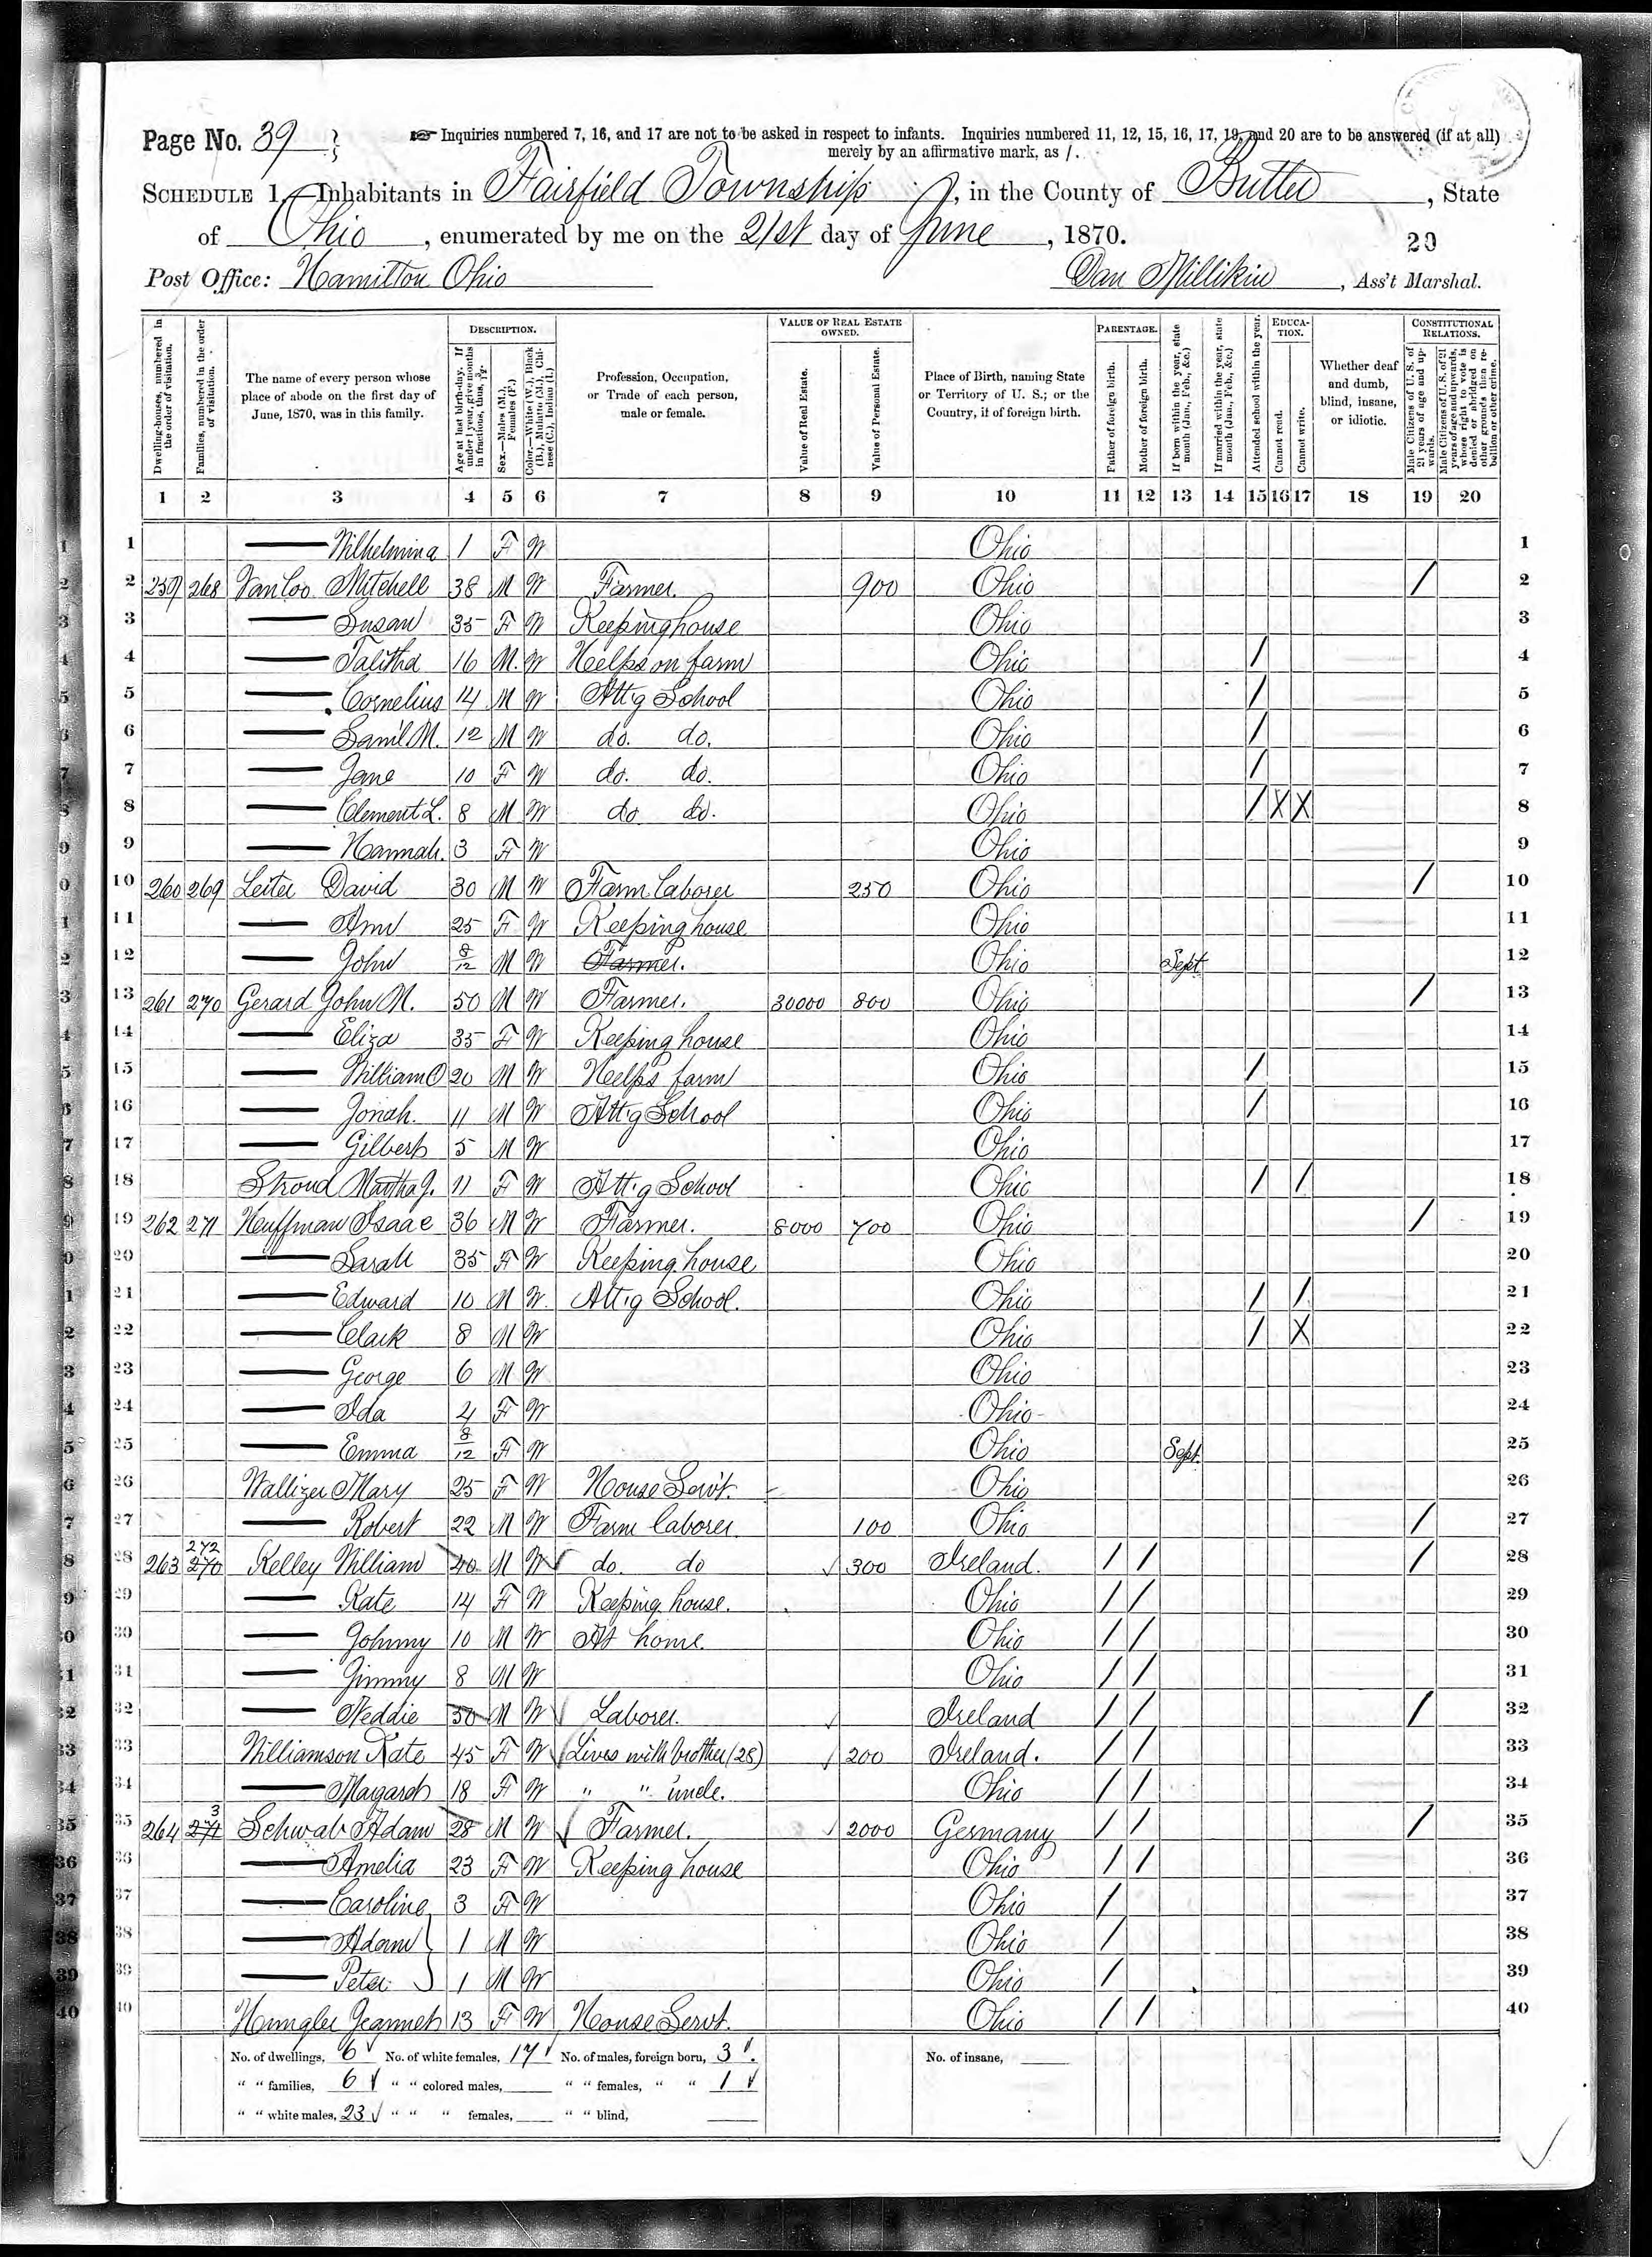 Page No. 39
☞ Inquiries numbered 7, 16, and 17 are not to be asked in respect to infants. Inquiries numbered 11, 12, 15, 16, 17, 19, and 20 are to be answered (if at all)
merely by an affirmative mark, as /.
SCHEDULE 1.—Inhabitants in Fairfield Township, in the County of Butler, State
of Ohio, enumerated by me on the 21st day of June, 1870.
20
Post Office: Hamilton Ohio Dan Millikin, Ass't Marshal.
Dwelling-houses, numbered in the order of visitation.
Families, numbered in the order of visitation.
The name of every person whose place of abode on the first day of June, 1870, was in this family.
DESCRIPTION.
Age at last birth-day. If under 1 year, give months in fractions, thus, 3/12
Sex.—Males (M.), Females (F.)
Color.—White (W.), Black (B.), Mulatto (M.), Chinese (C.), Indian (I.)
Profession, Occupation, or Trade of each person, male or female.
VALUE OF REAL ESTATE OWNED.
Value of Real Estate.
Value of Personal Estate.
Place of Birth, naming State or Territory of U. S.; or the Country, if of foreign birth.
PARENTAGE.
Father of foreign birth.
Mother of foreign birth.
If born within the year, state month (Jan., Feb., &c.)
If married within the year, state month (Jan., Feb., &c.)
Attended school within the year.
EDUCATION.
Cannot read.
Cannot write.
Whether deaf and dumb, blind, insane, or idiotic.
CONSTITUTIONAL RELATIONS.
Male Citizens of U. S. of 21 years of age and upwards.
Male Citizens of U. S. of 21 years of age and upwards, whose right to vote is denied or abridged on other grounds than rebellion or other crime.
1 2 3 4 5 6 7 8 9 10 11 12 13 14 15 16 17 18 19 20
1 — Wilhelmina 1 F W Ohio 1
2 259 268 VanLoo Mitchell 38 M W Farmer. 900 Ohio / 2
3 — Susan 35 F W Keeping house Ohio 3
4 — Talitha 16 M. W Helps on farm Ohio / 4
5 — Cornelius 14 M W Att'g School Ohio / 5
6 — Sam'l M. 12 M W do. do. Ohio / 6
7 — Jane 10 F W do. do. Ohio / 7
8 — Clement L. 8 M W do do. Ohio / X X 8
9 — Hannah. 3 F W Ohio 9
10 260 269 Leiter David 30 M W Farm laborer 250 Ohio / 10
11 — Ann 25 F W Keeping house Ohio 11
12 — John 8/12 M W Farmer. Ohio Sept 12
13 261 270 Gerard John M. 50 M W Farmer. 30000 800 Ohio / 13
14 — Eliza 35 F W Keeping house Ohio 14
15 — William O 20 M W Helps farm Ohio / 15
16 — Jonah. 11 M W Att'g School Ohio / 16
17 — Gilbert 5 M W Ohio 17
18 Stroud Martha J. 11 F W Att'g School Ohio / / 18
19 262 271 Huffman Isaac 36 M W Farmer. 8000 700 Ohio / 19
20 — Sarah 35 F W Keeping house Ohio 20
21 — Edward 10 M W. Att'g School. Ohio / / 21
22 — Clark 8 M W Ohio / X 22
23 — George 6 M W Ohio 23
24 — Ida 4 F W Ohio 24
25 — Emma 8/12 F W Ohio Sept. 25
26 Wallizer Mary 25 F W House Serv't. Ohio 26
27 — Robert 22 M W Farm laborer 100 Ohio / 27
272
28 263 270 Kelley William 40 M W do. do 300 Ireland. / / / 28
29 — Kate 14 F W Keeping house. Ohio / / 29
30 — Johnny 10 M W At home. Ohio / / 30
31 — Jimmy 8 M W Ohio / / 31
32 — Neddie 30 M W Laborer. Ireland / / / 32
33 Williamson Kate 45 F W Lives with brother (28) 200 Ireland. / / 33
34 — Magaret 18 F W " " uncle. Ohio / / 34
3
35 264 271 Schwab Adam 28 M W Farmer. 2000 Germany / / / 35
36 — Amelia 23 F W Keeping house Ohio / / 36
37 — Caroline 3 F W Ohio / 37
38 — Adam 1 M W Ohio / 38
39 — Peter 1 M W Ohio / 39
40 Jeannet 13 F W House Servt. Ohio / / 40
No. of dwellings, 6 No. of white females, 17 No. of males, foreign born, 3 No. of insane,
" " families, 6 " " colored males, " " females, " " 1
" " white males, 23 " " " females, " " blind,